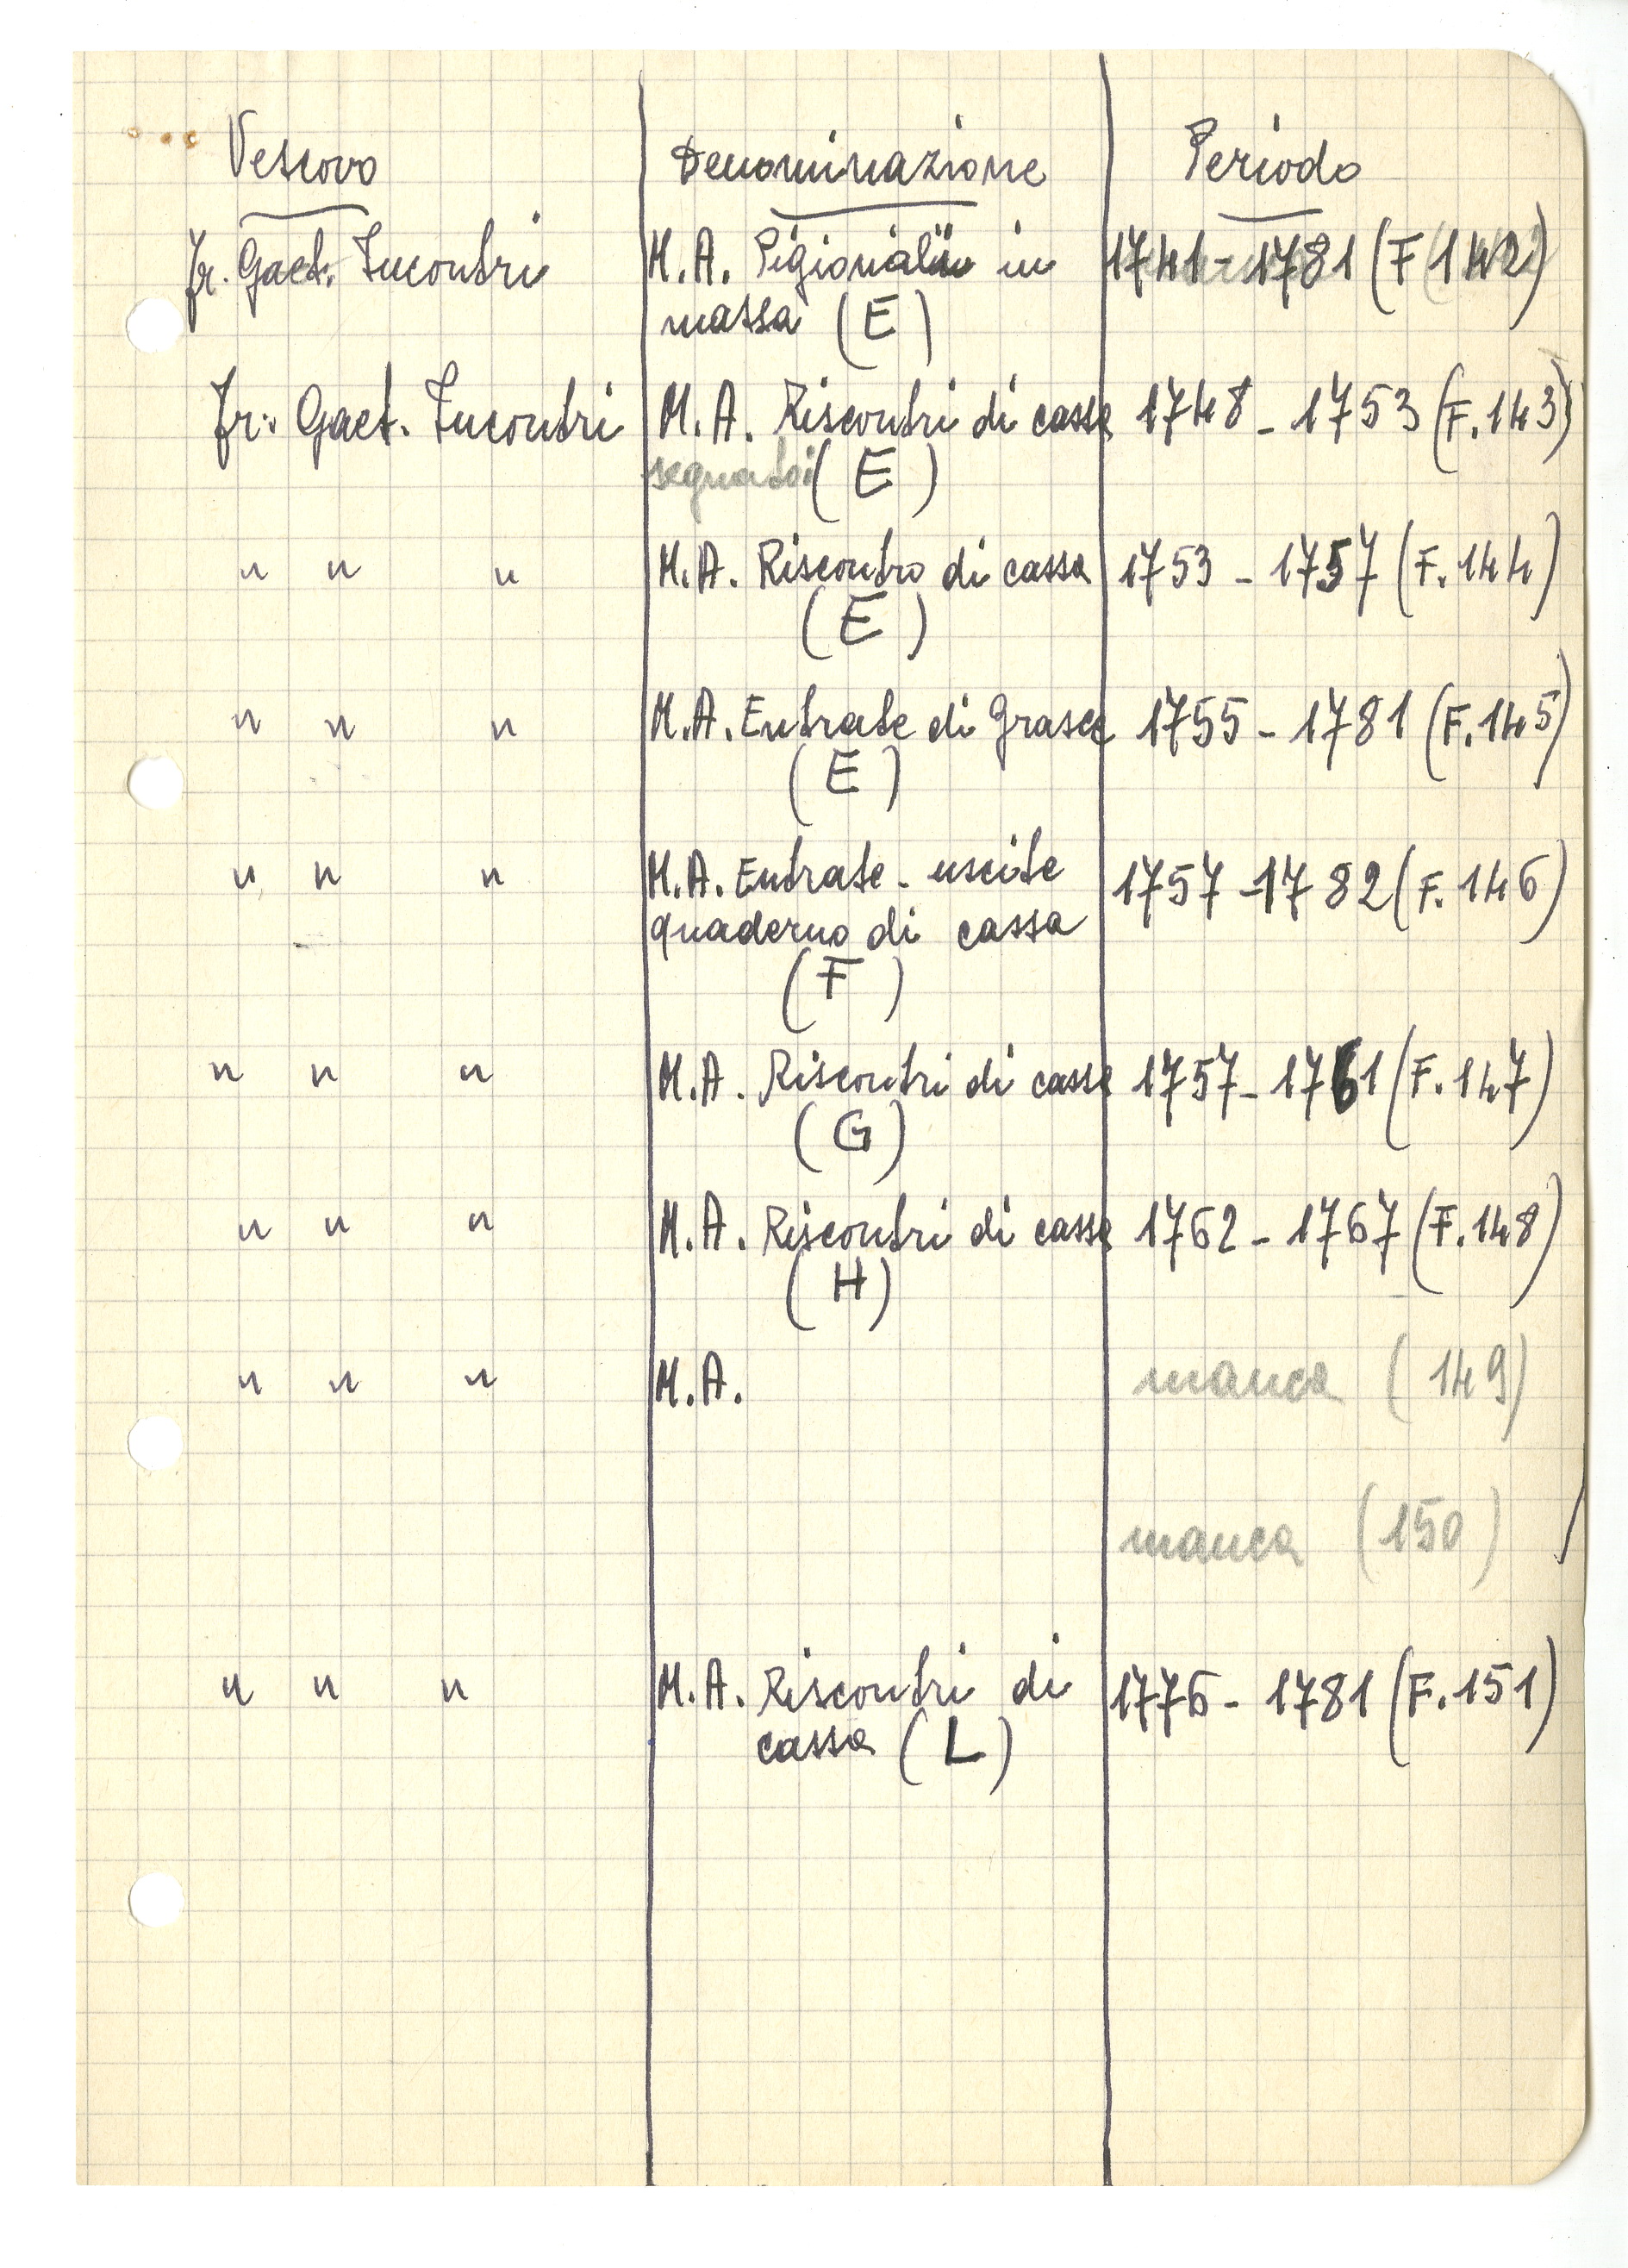 Vescovo Denominazione Periodo
Fr. Gaet. Incontri M.A. Pigionali in 1741 - 1781 (F 142)
massa (E)
Fr: Gaet. Incontri M.A. Riscontri di cassa 1748 - 1753 (F. 143)
segnato (E)
" " " M.A. Riscontro di cassa 1753 - 1757 (F. 144)
(E)
" " " M.A. Entrate di Grasce 1755 - 1781 (F. 145)
(E)
" " " M.A. Entrate - uscite 1757 - 1782 (F. 146)
quaderno di cassa
(F)
" " " M.A. Riscontri di cassa 1757 - 1761 (F. 147)
(G)
" " " M.A. Riscontri di cassa 1762 - 1767 (F. 148)
(H)
" " " M.A. manca (149)
manca (150)
" " " M.A. Riscontri di 1776 - 1781 (F. 151)
cassa (L)